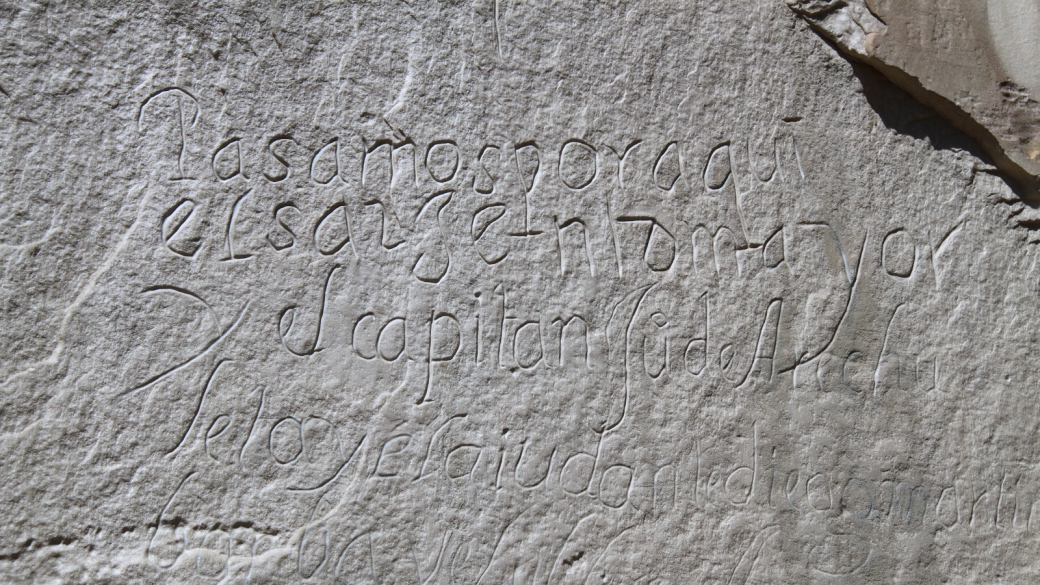 Pasamos por aqui
el sargento mayor
y el capitan Jũ de Archu
leta y el aiudante diego martin